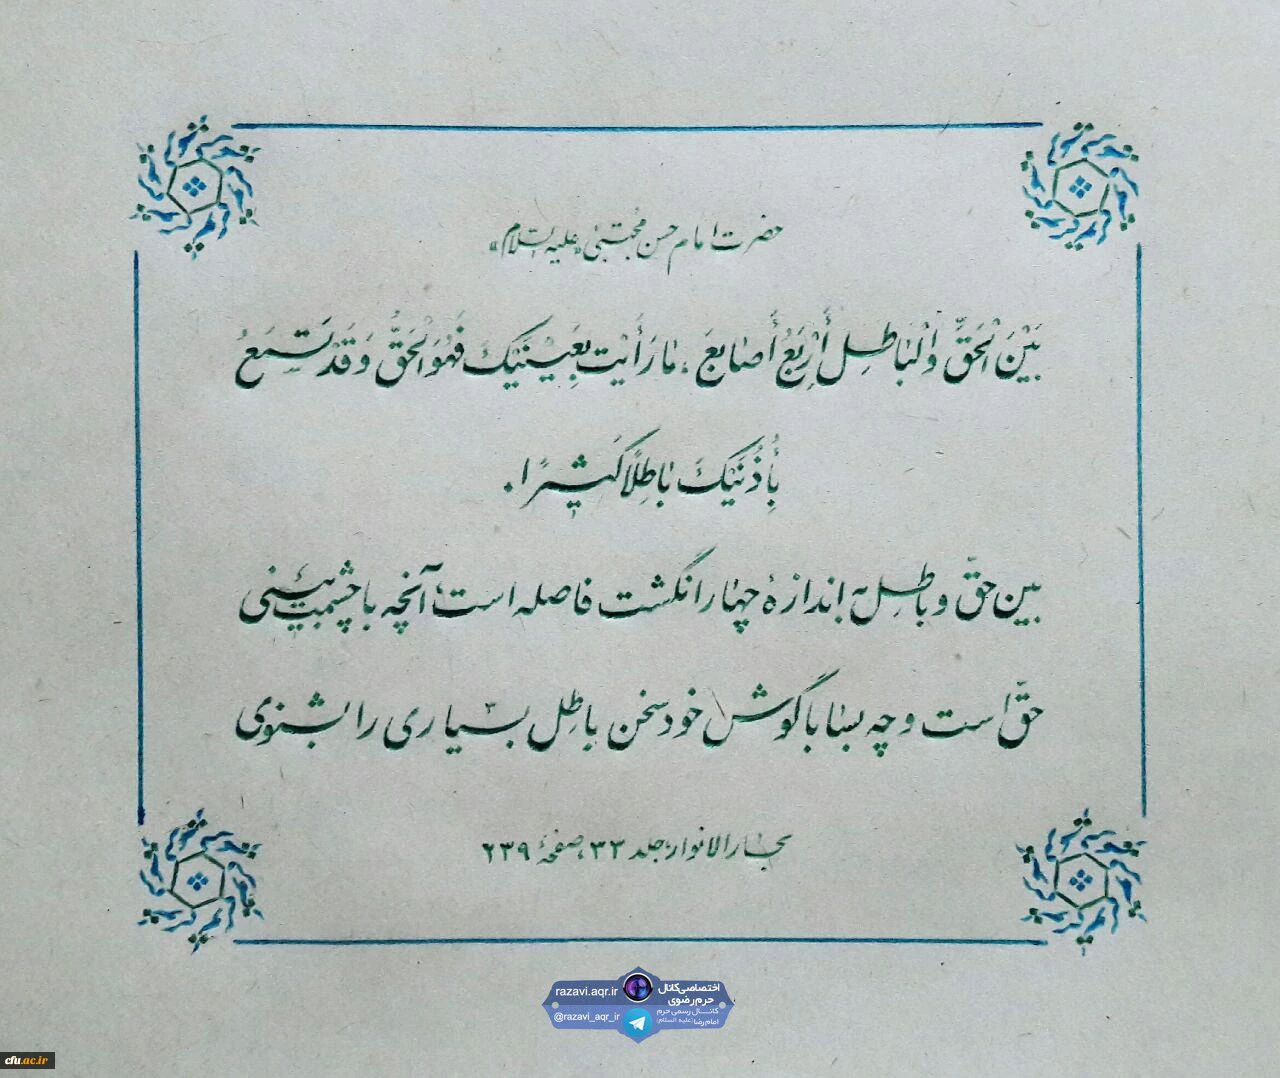 حضرت امام حسن مجتبی «علیه السلام»
بَیْنَ الْحَقِّ وَالْبَاطِلِ أَرْبَعُ أَصَابِعَ، مَا رَأَیْتَ بِعَیْنَیْکَ فَهُوَ الْحَقُّ وَ قَدْ تَسْمَعُ
بِأُذُنَیْکَ بَاطِلًا کَثِیرًا.
بین حقّ و باطل به اندازهٔ چهار انگشت فاصله است؛ آنچه با چشمت بینی
حقّ است و چه بسا با گوش خود سخن باطل بسیاری را بشنوی
بحارالانوار، جلد ۳۳، صفحهٔ ۲۳۹
اختصاصی کانال حرم رضوی
razavi.aqr.ir
کانال رسمی حرم امام رضا (علیه السلام)
@razavi_aqr_ir
cfu.ac.ir